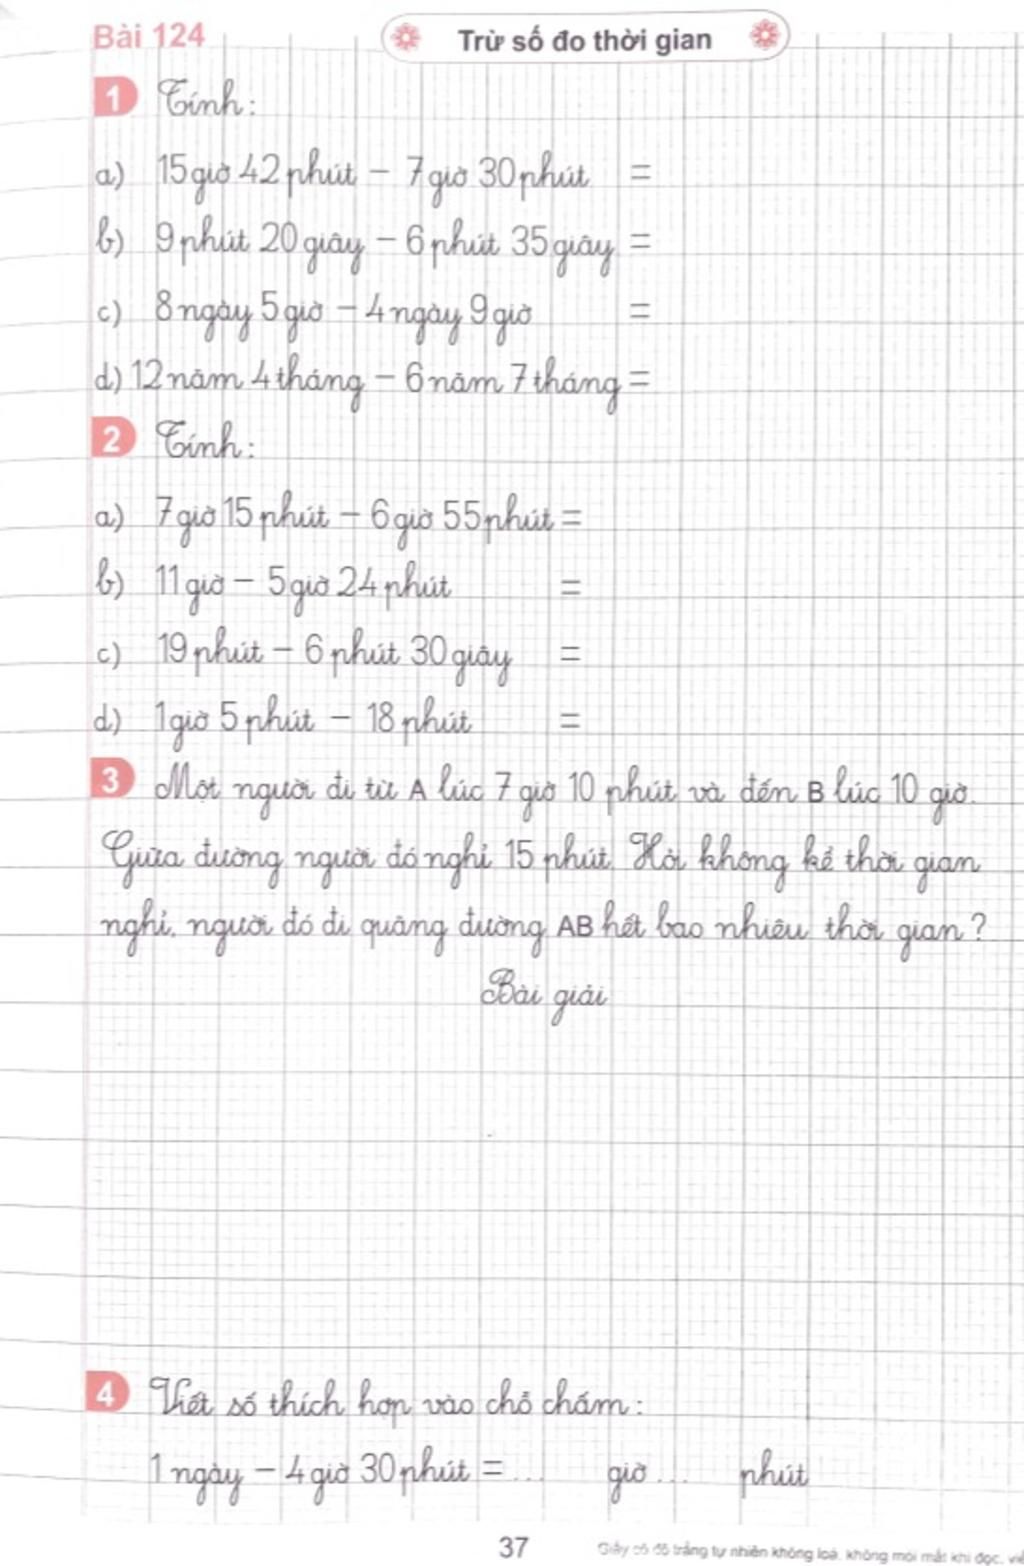 Bài 124
Trừ số đo thời gian
1 Tính:
a) 15 giờ 42 phút - 7 giờ 30 phút =
b) 9 phút 20 giây - 6 phút 35 giây =
c) 8 ngày 5 giờ - 4 ngày 9 giờ =
d) 12 năm 4 tháng - 6 năm 7 tháng =
2 Tính:
a) 7 giờ 15 phút - 6 giờ 55 phút =
b) 11 giờ - 5 giờ 24 phút =
c) 19 phút - 6 phút 30 giây =
d) 1 giờ 5 phút - 18 phút =
3 Một người đi từ A lúc 7 giờ 10 phút và đến B lúc 10 giờ.
Giữa đường người đó nghỉ 15 phút. Hỏi không kể thời gian
nghỉ, người đó đi quãng đường AB hết bao nhiêu thời gian?
Bài giải
4 Viết số thích hợp vào chỗ chấm:
1 ngày - 4 giờ 30 phút = ... giờ ... phút
37
Giấy có độ trắng tự nhiên không loá, không mỏi mắt khi đọc,